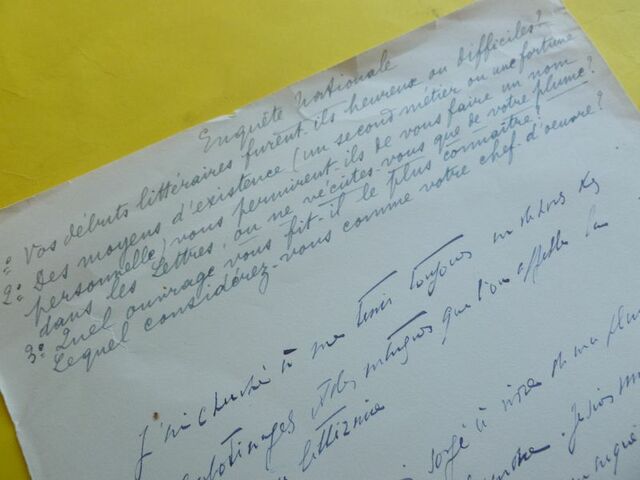 Enquête Nationale
1° Vos débuts littéraires furent-ils heureux ou difficiles?
2° Des moyens d'existence (un second métier ou une fortune
personnelle) vous permirent-ils de vous faire un nom
dans les Lettres, ou ne vécûtes-vous que de votre plume?
3° Quel ouvrage vous fit-il le plus connaître?
Lequel considérez-vous comme votre chef d'oeuvre?
J'ai cherché à me tenir toujours en dehors des
et des intrigues que l'on appelle la
littéraire
songé à vivre de ma plume